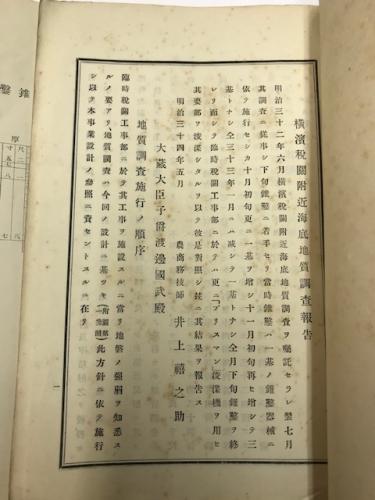 橫濱稅關附近海底地質調查報告
明治三十二年六月橫濱稅關附近海底地質調查ヲ囑託セラレ翌七月
其調查ニ從事シ下旬鑵鑿ニ着手セリ當時鑵鑿ハ一基ノ鑵鑿器械ニ
依テ施行セシカ十月初旬更ニ一基ヲ增シ十一月初旬再ヒ增シテ三
基トナシ仝三十三年一月ニハ減シテ一基トナシ仝月下旬鑵鑿ヲ終
レリ而シテ臨時稅關工事部ニ於テハ更ニ「プリスマン」浚渫機ヲ用ヒ
其要部ヲ浚渫シタルヲ以テ彼是對照シ茲ニ其結果ヲ報告ス
明治三十四年五月
農商務技師 井上禧之助
大藏大臣子爵渡邊國武殿
地質調查施行ノ順序
臨時稅關工事部ニ於テ其工事ヲ施設スルニ當リ地盤ノ强弱ヲ知悉ス
ルノ要アリ地質調查ハ今回ノ設計ニ基ツキ(附圖第一參照)此方針ニ依テ施行
シ以テ本事業設計ノ參照ニ資セントスルニ在リ
一